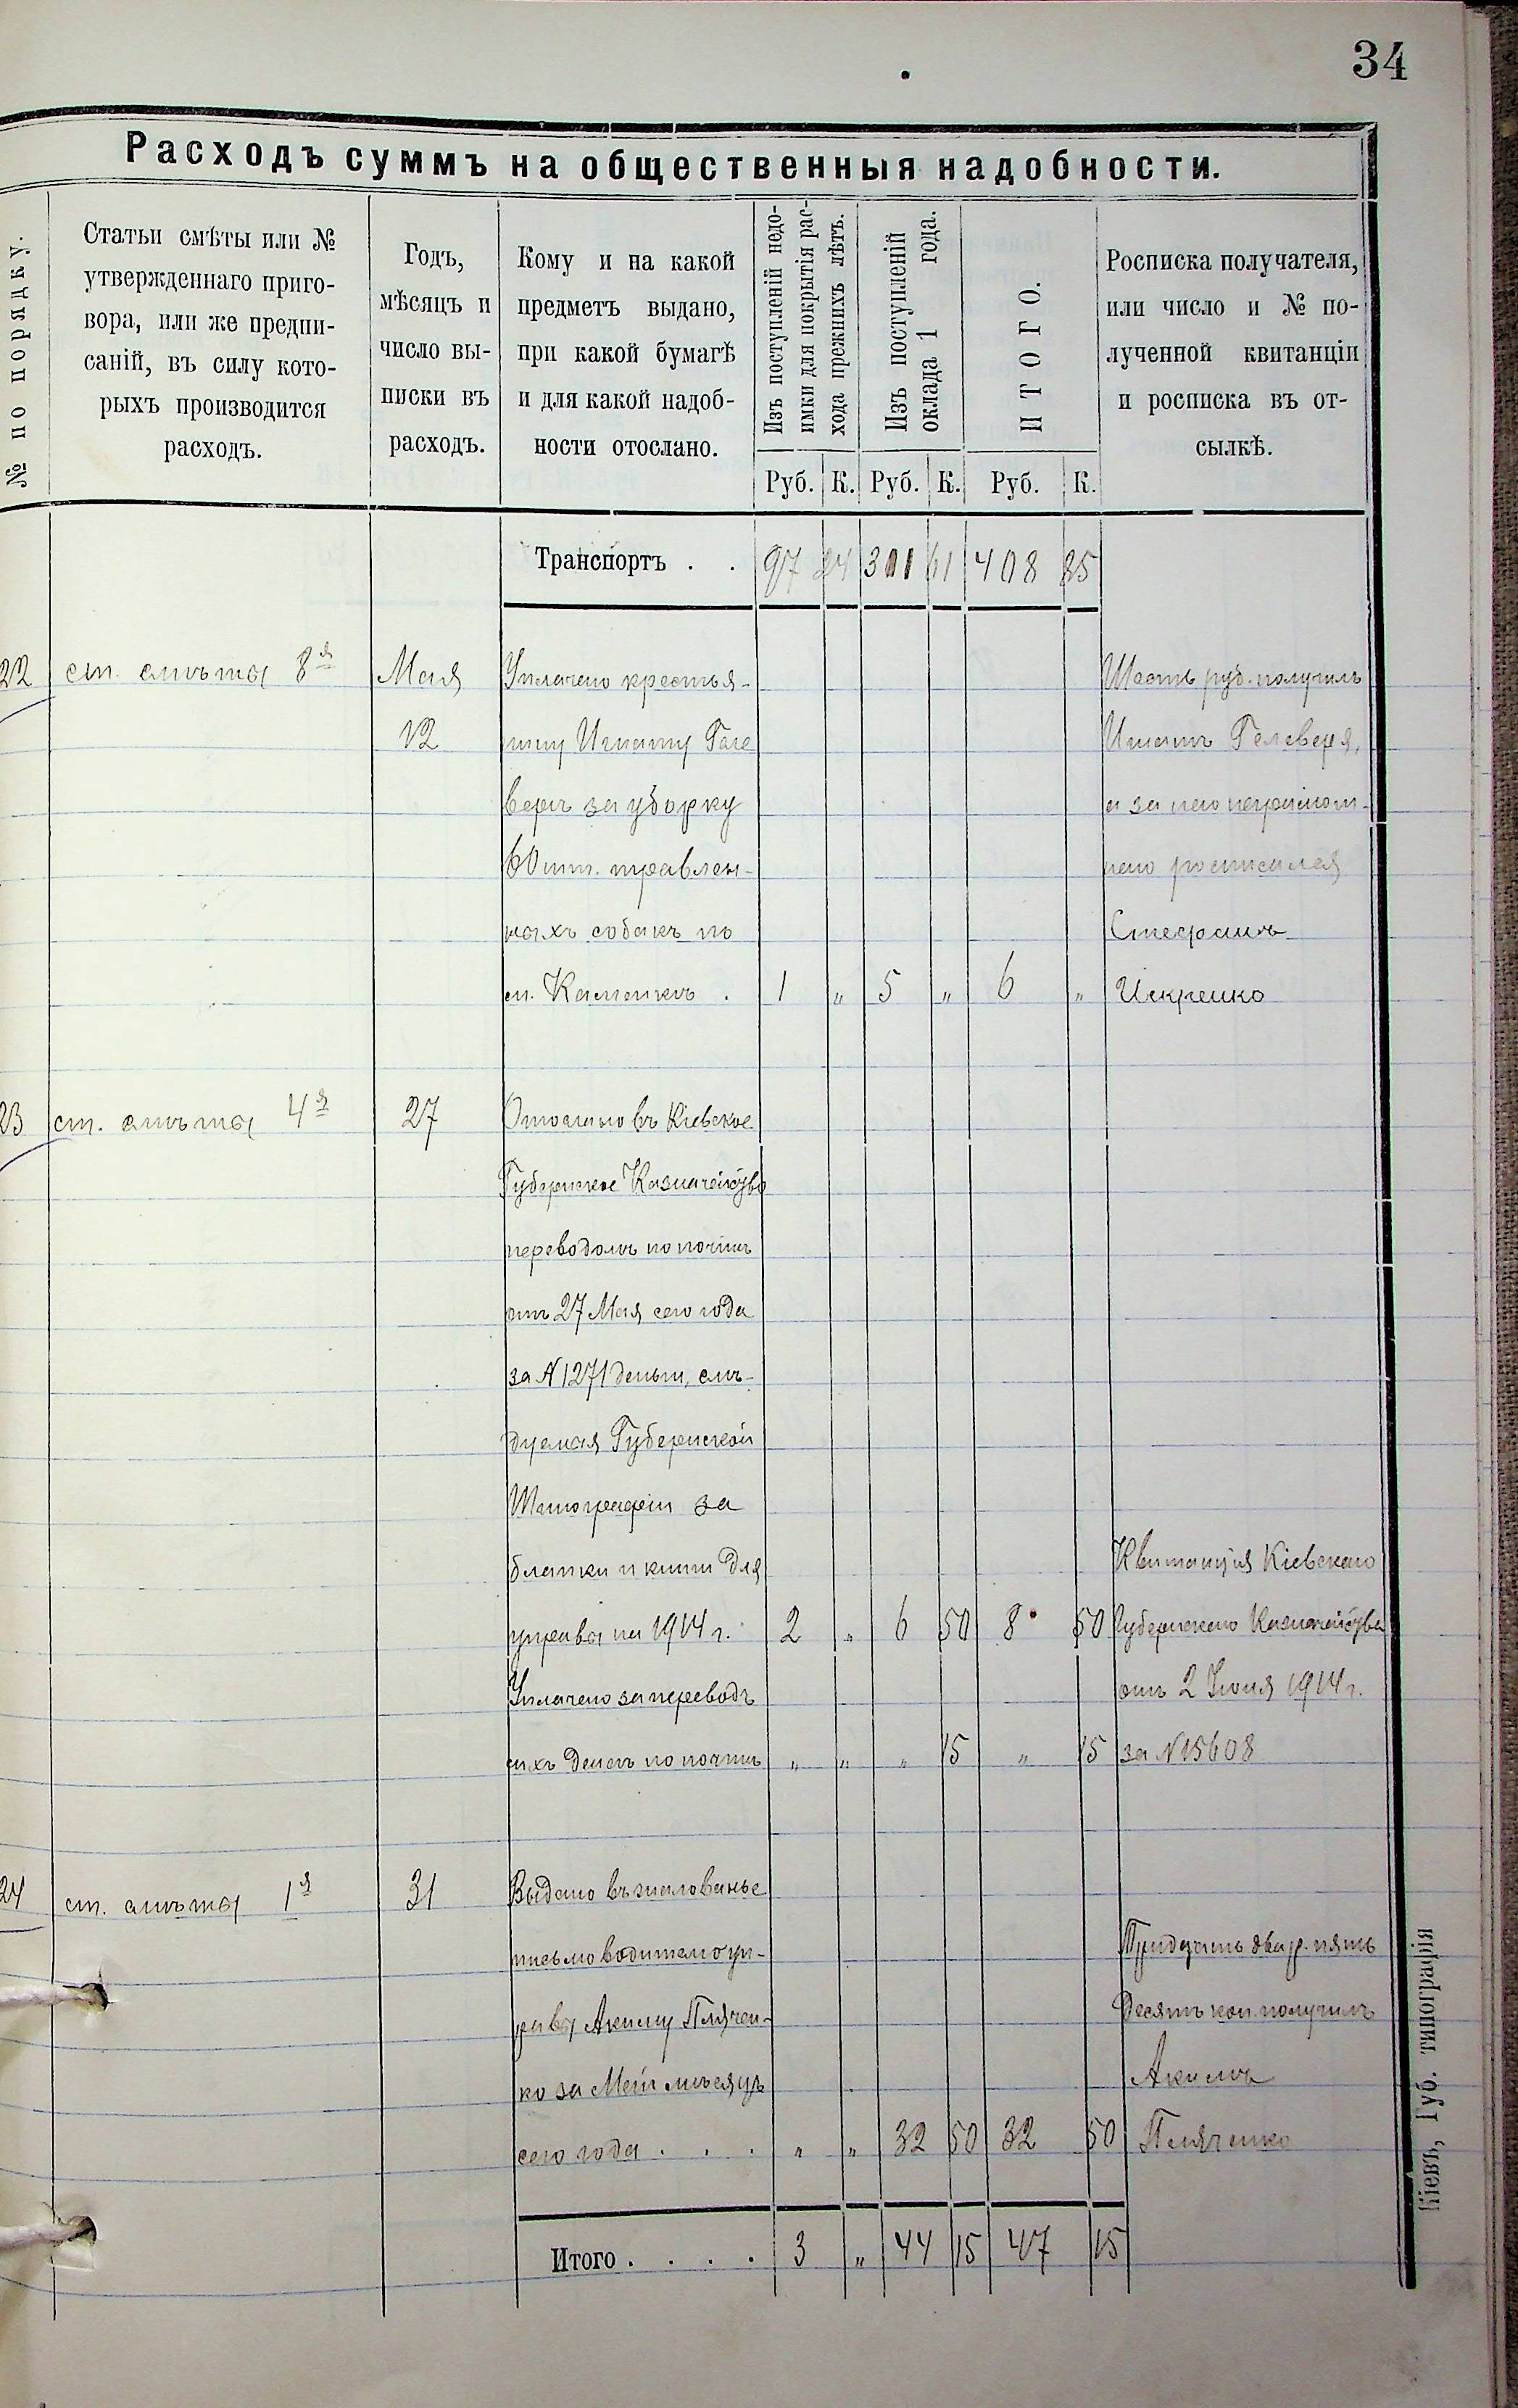 34
Расходъ суммъ на общественныя надобности.
№ по порядку.
Статьи смѣты или №
утвержденнаго приго-
вора, или же предпи-
саній, въ силу кото-
рыхъ производится
расходъ.
Годъ,
мѣсяцъ и
число вы-
писки въ
расходъ.
Кому и на какой
предметъ выдано,
при какой бумагѣ
и для какой надоб-
ности отослано.
Изъ поступленій недо-
имки для покрытія рас-
хода прежнихъ лѣтъ.
Изъ поступленій
оклада 1 года.
ИТОГО.
Росписка получателя,
или число и № по-
лученной квитанціи
и росписка въ от-
сылкѣ.
Руб. К. Руб. К. Руб. К.
Транспортъ . . 97 24 311 61 408 85
22 ст. смѣты 8я Мая Уплачено крестья- Шесть руб. получилъ
12 нину Игнату Геле Игнатъ Гелеверя,
верѣ за уборку а за него неграмот-
60 шт. травлен- наго росписался
ныхъ собакъ по Стефанъ
м. Каменкѣ . 1 " 5 " 6 " Искренко
23 ст. смѣты 4я 27 Отослано въ Кіевское
Губернское Казначейство
переводомъ по почтѣ
отъ 27 Мая сего года
за № 1271 деньги, слѣ-
дуемыя Губернской
Типографіи за
бланки и книги для Квитанція Кіевскаго
управы на 1914 г. 2 " 6 50 8 50 Губернскаго Казначейства
Уплачено за переводъ отъ 2 Іюня 1914 г.
сихъ денегъ по почтѣ " " " 15 " 15 за № 15608
24 ст. смѣты 1я 31 Выдано въ жалованье
письмоводителю уп- Тридцать два р. пять
равы Акиму Плячен- десятъ коп. получилъ
ко за Май мѣсяцъ Акимъ
сего года . . . " " 32 50 32 50 Пляченко
Итого . . . . 3 " 44 15 47 15
Кіевъ, Губ. типографія